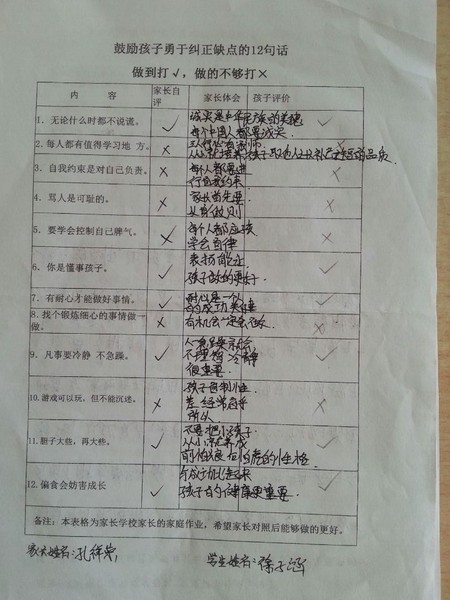 鼓励孩子勇于纠正缺点的12句话
做到打√，做的不够打×
内 容 家长自评 家长体会 孩子评价
1. 无论什么时都不说谎。 √ 诚实是中华民族的美德 √
每个中国人都要诚实
2. 每人都有值得学习地 方。 × ×
从小培养孩子取他人长补己短的品质
3. 自我约束是对自己负责。 × 每人都要进 ×
行自我约束
4. 骂人是可耻的。 × 家长首先要 ×
以身做则
5. 要学会控制自己脾气。 × 每个人都应该 ×
学会自律
6. 你是懂事孩子。 √ 表扬能让 √
孩子做的更好.
7. 有耐心才能做好事情。 √ 耐心是一个 √
的成功关键
8. 找个锻炼细心的事情做一做。 × 有机会一定会去做 ×
9. 凡事要冷静 不急躁。 √ √
不理智 冷静
很重要.
10. 游戏可以玩，但不能沉迷。 × 孩子自制性 ×
差 经常
11. 胆子大些，再大些。 √ 不要把小孩子 √
从小就养成
的性格
12. 偏食会妨害成长 √ √
孩子的健康更重要.
备注：本表格为家长学校家长的家庭作业，希望家长对照后能够做的更好。
家长姓名：孔祥荣 学生姓名：徐子涵